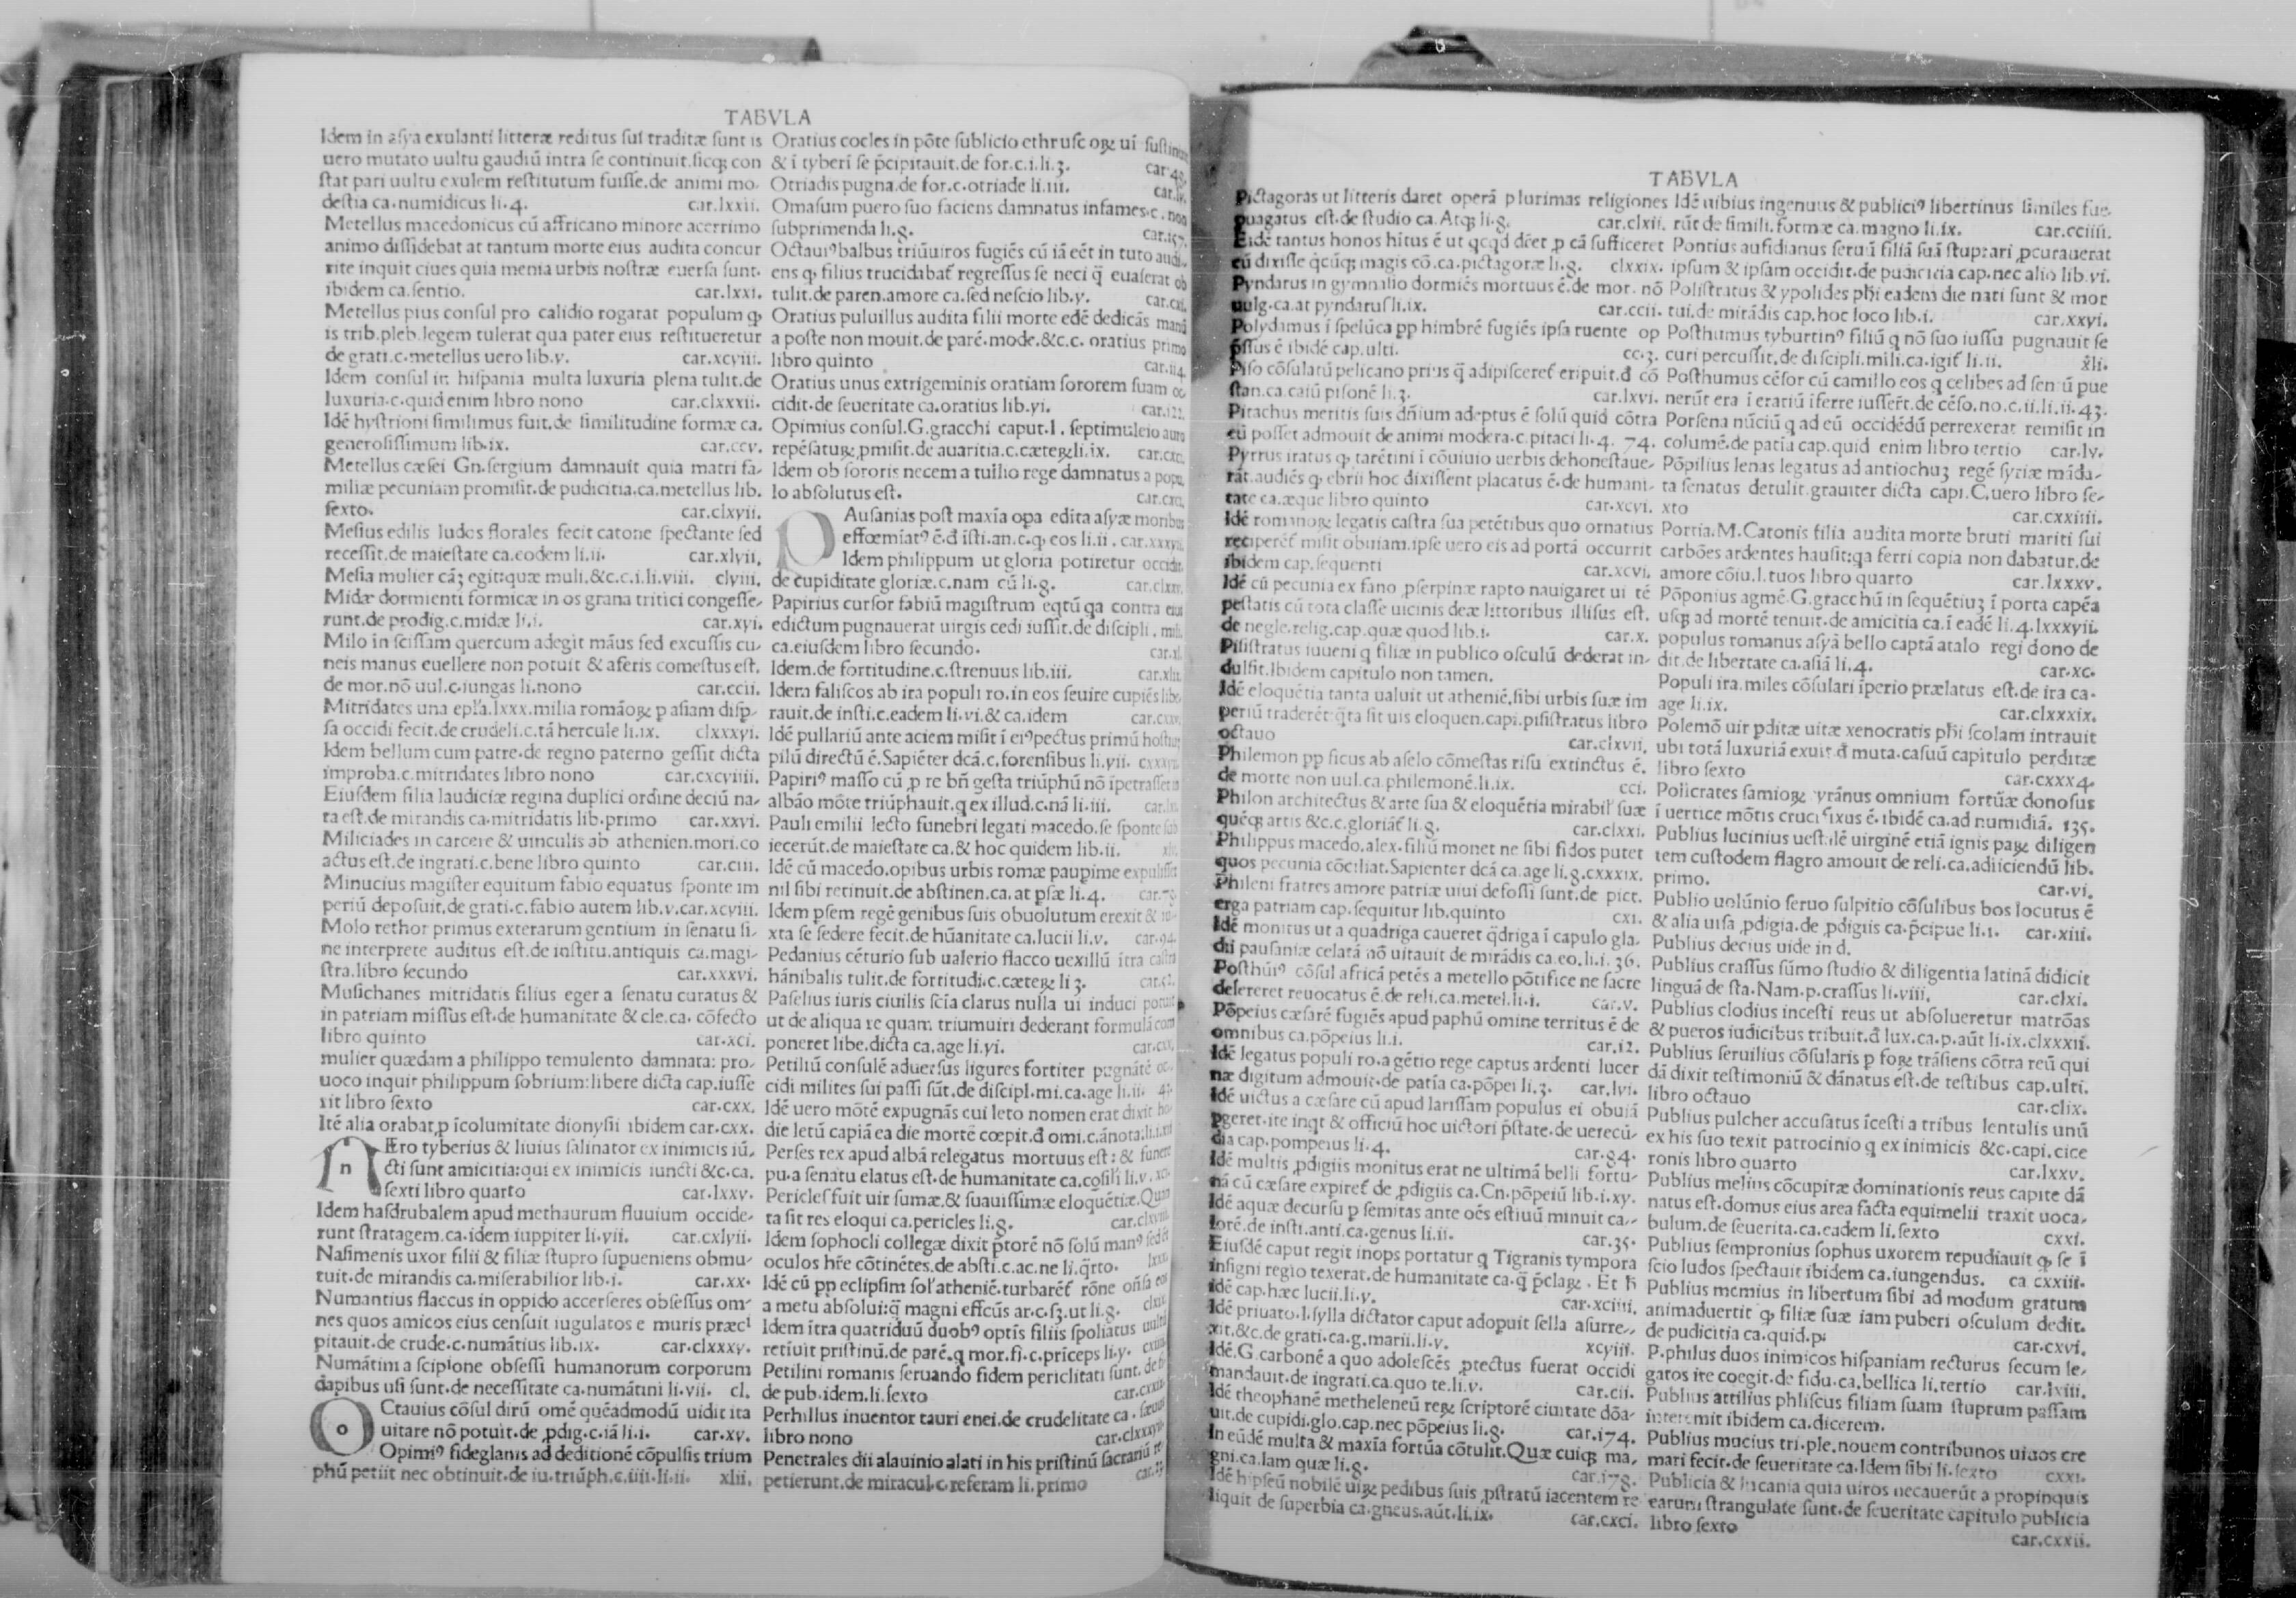 TABVLA
Idem in asya exulanti litteræ reditus sui traditæ sunt is
uero mutato uultu gaudiū intra se continuit.sicqȝ con
stat pari uultu exulem restitutum fuisse.de animi mo-
destia ca.numidicus li.4. car.lxxii.
Metellus macedonicus cū affricano minore acerrimo
animo dissidebat at tantum morte eius audita concur
rite inquit ciues quia menia urbis nostræ euersa sunt.
ibidem ca.sentio. car.lxxi.
Metellus pius consul pro calidio rogarat populum ꝙ
is trib.pleb.legem tulerat qua pater eius restitueretur
de grati.c.metellus uero lib.v. car.xcviii.
Idem consul in hispania multa luxuria plena tulit.de
luxuria.c.quid enim libro nono car.clxxxii.
Idē hystrioni simillimus fuit.de similitudine formæ ca.
generosissimum lib.ix. car.ccv.
Metellus cæsei Gn.sergium damnauit quia matri fa-
miliæ pecuniam promisit.de pudicitia.ca.metellus lib.
sexto. car.clxvii.
Mesius edilis ludos florales fecit catone spectante sed
recessit.de maiestate ca.eodem li.ii. car.xlvii.
Mesia mulier cāȝ egit:quæ muli.&c.c.i.li.viii. clviii.
Midæ dormienti formicæ in os grana tritici congesse-
runt.de prodig.c.midæ li.i. car.xvi.
Milo in scissam quercum adegit māus sed excussis cu-
neis manus euellere non potuit & a feris comestus est.
de mor.nō uul.c.iungas li.nono car.ccii.
Mitridates una epl'a.lxxx.milia romāoꝝ p asiam disp-
sa occidi fecit.de crudeli.c.tā hercule li.ix. clxxxvi.
Idem bellum cum patre.de regno paterno gessit dicta
improba.c.mitridates libro nono car.cxcviiii.
Eiusdem filia laudiciæ regina duplici ordine deciū na-
ta est.de mirandis ca.mitridatis lib.primo car.xxvi.
Miliciades in carcere & uinculis ab athenien.mori.co
actus est.de ingrati.c.bene libro quinto car.ciii.
Minucius magister equitum fabio equatus sponte im
periū deposuit.de grati.c.fabio autem lib.v.car.xcviii.
Molo rethor primus exterarum gentium in senatu si-
ne interprete auditus est.de institu.antiquis ca.magi-
stra.libro secundo car.xxxvi.
Musichanes mitridatis filius eger a senatu curatus &
in patriam missus est.de humanitate & cle.ca. cōfecto
libro quinto car.xci.
mulier quædam a philippo temulento damnata: pro-
uoco inquit philippum sobrium:libere dicta cap.iusse
rit libro sexto car.cxx.
Itē alia orabat,p īcolumitate dionysii ibidem car.cxx.
n Ero tyberius & liuius salinator ex inimicis iū-
cti sunt amicitia:qui ex inimicis iuncti &c.ca.
sexti libro quarto car.lxxv.
Idem hasdrubalem apud methaurum fluuium occide-
runt stratagem.ca.idem iuppiter li.vii. car.cxlvii.
Nasimenis uxor filii & filiæ stupro supueniens obmu-
tuit.de mirandis ca.miserabilior lib.i. car.xx.
Numantius flaccus in oppido accerseres obsessus om-
nes quos amicos eius censuit iugulatos e muris præci
pitauit.de crude.c.numātius lib.ix. car.clxxxv.
Numātini a scipione obsessi humanorum corporum
dapibus usi sunt.de necessitate ca.numātini li.vii. cl.
o Ctauius cōsul dirū omē quēadmodū uidit ita
uitare nō potuit.de ꝓdig.c.iā li.i. car.xv.
Opimiꝰ fideglanis ad deditionē cōpulsis trium
phū petiit nec obtinuit.de iu.triūph.c.iiii.li.ii. xlii.
Oratius cocles in pōte sublicio ethruscoꝝ ui
& ī tyberī se p̄cipitauit.de for.c.i.li.3.
Otriadis pugna.de for.c.otriade li.iii.
Omasum puero suo faciens damnatus infames.c. non
subprimenda li.8. car.157.
Octauiꝰ balbus triūuiros fugiēs cū iā eēt in tuto
ens ꝙ filius trucidabat̄ regressus se neci q̄ euaserat ob
tulit.de paren.amore ca.sed nescio lib.v. car.cxi.
Oratius puluillus audita filii morte edē dedicās manū
a poste non mouit.de parē.mode.&c.c. oratius primo
libro quinto car.114.
Oratius unus ex trigeminis oratiam sororem suam oc-
cidit.de seueritate ca.oratius lib.vi. car.122.
Opimius consul.G.gracchi caput.l. septimuleio auro
repēsatuꝝ,pmisit.de auaritia.c.cæteꝝ li.ix.
Idem ob sororis necem a tullio rege damnatus a popu
lo absolutus est.
P Ausanias post maxīa opa edita asyæ moribus
effœmiatꝰ ē.d isti.an.c.ꝙ eos li.ii.
Idem philippum ut gloria potiretur occidit
de cupiditate gloriæ.c.nam cū li.8.
Papirius cursor fabiū magistrum eqtū qa contra
edictum pugnauerat uirgis cedi iussit.de discipli. mili.
ca.eiusdem libro secundo.
Idem.de fortitudine.c.strenuus lib.iii.
Idem faliscos ab ira populi ro.in eos seuire cupiēs
rauit.de insti.c.eadem li.vi.& ca.idem
Idē pullariū ante aciem misit ī eiꝰ pectus primū
pilū directū ē.Sapiēter dcā.c.forensibus li.vii.
Papiriꝰ masso cū ꝓ re bn̄ gesta triūphū nō īpetrasset
albāo mōte triūphauit.q ex illud.c.nā li.iii.
Pauli emilii lecto funebri legati macedo.se sponte
iecerūt.de maiestate ca.& hoc quidem lib.ii.
Idē cū macedo.opibus urbis romæ paupīme
nil sibi retinuit.de abstinen.ca.at psæ li.4.
Idem psem regē genibus suis obuolutum erexit &
xta se sedere fecit.de hūanitate ca.lucii li.v. car.94.
Pedanius cēturio sub ualerio flacco uexillū ītra castra
hānibalis tulit.de fortitudi.c.cæteꝝ li 3. car.52.
Paselius iuris ciuilis scīa clarus nulla ui induci potuit
ut de aliqua re quam triumuiri dederant formulā com
poneret libe.dicta ca.age li.vi.
Petiliū consulē aduersus ligures fortiter pugnātē
cidi milites sui passi sūt.de discipl.mi.ca.age li.ii.
Idē uero mōtē expugnās cui leto nomen erat dixit
die letū capiā ea die mortē cœpit.d omi.c.ānota:li.
Perses rex apud albā relegatus mortuus est: & funere
pu.a senatu elatus est.de humanitate ca.
Pericles fuit uir sumæ.& suauissimæ eloquētiæ.Quan
ta sit res eloqui ca.pericles li.8.
Idem sophocli collegæ dixit p̄torē nō solū manꝰ
oculos hr̄e cōtinētes.de absti.c.ac.ne li.q̄rto.
Idē cū pp eclipsim sol' atheniē.turbarēt̄ rōne
a metu absolui:q̄ magni effcūs ar.c.sȝ.ut li.8.
Idem ītra quatriduū duobꝰ optīs filiis spoliatus
retiuit pristinū.de parē.q mor.fi.c.prīceps li.v.
Petilini romanis seruando fidem periclitati sunt.
de pub.idem.li.sexto
Perhillus inuentor tauri enei.de crudelitate ca.
libro nono
Penetrales dii alauinio alati in his pristinū sacrariū
petierunt.de miracul.c.referam li. primo
TABVLA
Pictagoras ut litteris daret operā plurimas religiones
puagatus est.de studio ca.Atqȝ li.8. car.clxii.
Eidē tantus honos hītus ē ut qcqd dēet ꝓ cā sufficeret
eū dixisse q̄cūqȝ magis cō.ca.pictagoræ li.8. clxxix.
Pyndarus in gymnasio dormiēs mortuus ē.de mor. nō
uulg.ca.at pyndarus li.ix. car.ccii.
Polydamus ī spelūca pp himbrē fugiēs ipsa ruente op
p̄ssus ē ibidē cap.ulti. cc.3.
Piso cōsulatū pelicano prius q̄ adipisceret̄ eripuit.d cō
stan.ca.caiū pisonē li.3. car.lxvi.
Pitachus meritis suis dn̄ium adeptus ē solū quid cōtra
eū posset admouit de animi modera.c.pitaci li.4. 74.
Pyrrus iratus ꝙ tarētini ī cōuiuio uerbis dehonestaue-
rāt.audiēs ꝙ ebrii hoc dixissent placatus ē.de humani-
tate ca.æque libro quinto car.xcvi.
Idē romanoꝝ legatis castra sua petētibus quo ornatius
reciperēt̄ misit obuiam.ipse uero eis ad portā occurrit
ibidem cap.sequenti car.xcvi.
Idē cū pecunia ex fano ꝓserpinæ rapto nauigaret ui tē
pestatis cū tota classe uicinis deæ littoribus illisus est.
de negle.relig.cap.quæ quod lib.i. car.x.
Pisistratus iuueni q filiæ in publico osculū dederat in-
dulsit.Ibidem capitulo non tamen.
Idē eloquētia tanta ualuit ut atheniē.sibi urbis suæ im
periū traderēt:q̄ta sit uis eloquen.capi.pisistratus libro
octauo car.clxvii.
Philemon pp ficus ab aselo cōmestas risu extinctus ē.
de morte non uul.ca.philemonē.li.ix. cci.
Philon architectus & arte sua & eloquētia mirabil' suæ
quēqȝ artis &c.c.gloriāt̄ li.8. car.clxxi.
Philippus macedo.alex.filiū monet ne sibi fidos putet
quos pecunia cōciliat.Sapienter dcā ca.age li.8.cxxxix.
Phileni fratres amore patriæ uiui defossi sunt.de piet.
erga patriam cap.sequitur lib.quinto cxi.
Idē monitus ut a quadriga caueret q̄driga ī capulo gla-
dii pausaniæ celatā nō uitauit de mirādis ca.eo.li.i. 36.
Posthūiꝰ cōsul africā petēs a metello pōtifice ne sacre
desereret reuocatus ē.de reli.ca.metel.li.i. car.v.
Pōpeius cæsarē fugiēs apud paphū omine territus ē de
omnibus ca.pōpeius li.i. car.12.
Idē legatus populi ro.a gētio rege captus ardenti lucer
næ digitum admouit.de patīa ca.pōpei li.3. car.lvi.
Idē uictus a cæsare cū apud larissam populus ei obuiā
pgeret.ite inqt & officiū hoc uictori p̄state.de uerecū-
dia cap.pompeius li.4. car.84.
Idē multis ꝓdigiis monitus erat ne ultimā belli fortu-
nā cū cæsare expiret̄ de ꝓdigiis ca.Cn.pōpeiū lib.i.xv.
Idē aquæ decursu p semitas ante oēs estiuū minuit ca-
lorē.de insti.anti.ca.genus li.ii. car.35.
Eiusdē caput regit inops portatur q Tigranis tympora
insigni regio texerat.de humanitate ca.q̄ p̄claꝝ. Et h̄
idē cap.hæc lucii.li.v. car.xciiii.
Idē priuato.l.sylla dictator caput adopuit sella asurre-
xit.&c.de grati.ca.g.marii.li.v. xcviii.
Idē.G.carbonē a quo adolescēs ꝓtectus fuerat occidi
mandauit.de ingrati.ca.quo te.li.v. car.cii.
Idē theophanē metheleneū reꝝ scriptorē ciuitate dōa-
uit.de cupidi.glo.cap.nec pōpeius li.8. car.174.
In eūdē multa & maxīa fortūa cōtulit.Quæ cuiqȝ ma-
gni.ca.Iam quæ li.8. car.178.
Idē hipseū nobilē uiꝝ pedibus suis ꝓstratū iacentem re
liquit de superbia ca.gneus.aūt.li.ix. car.cxci.
Idē uibius ingenuus & publiciꝰ libertinus similes fue-
rūt de simili.formæ ca.magno li.ix. car.cciiii.
Pontius aufidianus seruū filiā suā stuprari ꝓcurauerat
ipsum & ipsam occidit.de pudicitia cap.nec alio lib.vi.
Polistratus & ypolides phi eadem die nati sunt & mor
tui.de mirādis cap.hoc loco lib.i. car.xxvi.
Posthumus tyburtinꝰ filiū q nō suo iussu pugnauit se
curi percussit.de discipli.mili.ca.igit̄ li.ii. xli.
Posthumus cēsor cū camillo eos q celibes ad senū pue
nerūt era ī erariū īferre iusser̄t.de cēso.no.c.ii.li.ii.43.
Porsena nūciū q ad eū occidēdū perrexerat remisit in
columē.de patīa cap.quid enim libro tertio car.lv.
Pōpilius lenas legatus ad antiochuȝ regē syriæ māda-
ta senatus detulit.grauiter dicta capi.C.uero libro se-
xto car.cxxiiii.
Portia.M.Catonis filia audita morte bruti mariti sui
carbōes ardentes hausit:qa ferri copia non dabatur.de
amore cōiu.l.tuos libro quarto car.lxxxv.
Pōponius agmē.G.gracchū in sequētiuȝ ī porta capēa
usqȝ ad mortē tenuit.de amicitia ca.ī eadē li.4.lxxxvii.
populus romanus asyā bello captā atalo regi dono de
dit.de libertate ca.asiā li.4. car.xc.
Populi ira.miles cōsulari īperio prælatus est.de ira ca-
age li.ix. car.clxxxix.
Polemō uir pditæ uitæ xenocratis phi scolam intrauit
ubi totā luxuriā exuit.d muta.casuū capitulo perditæ
libro sexto car.cxxx4.
Policrates samioꝝ tyrānus omnium fortūæ donosus
ī uertice mōtis crucifixus ē.ibidē ca.ad numidiā. 135.
Publius lucinius uestālē uirginē etiā ignis paꝝ diligen
tem custodem flagro amouit de reli.ca.adiiciendū lib.
primo. car.vi.
Publio uolūnio seruo sulpitio cōsulibus bos locutus ē
& alia uisa ꝓdigia.de ꝓdigiis ca.p̄cipue li.i. car.xiii.
Publius decius uide in d.
Publius crassus sūmo studio & diligentia latinā didicit
linguā de sta.Nam.p.crassus li.viii. car.clxi.
Publius clodius incesti reus ut absolueretur matrōas
& pueros iudicibus tribuit.d lux.ca.p.aūt li.ix.clxxxii.
Publius seruilius cōsularis p foꝝ trāsiens cōtra reū qui
dā dixit testimoniū & dānatus est.de testibus cap.ulti.
libro octauo car.clix.
Publius pulcher accusatus īcesti a tribus lentulis unū
ex his suo texit patrocinio q ex inimicis &c.capi.cice
ronis libro quarto car.lxxv.
Publius melius cōcupitæ dominationis reus capite dā
natus est.domus eius area facta equimelii traxit uoca-
bulum.de seuerita.ca.eadem li.sexto cxxi.
Publius sempronius sophus uxorem repudiauit ꝙ se ī
scio ludos spectauit ibidem ca.iungendus. ca cxxiii.
Publius memius in libertum sibi ad modum gratum
animaduertit ꝙ filiæ suæ iam puberi osculum dedit.
de pudicitia ca.quid.p. car.cxvi.
P.philus duos inimicos hispaniam recturus secum le-
gatos ire coegit.de fidu.ca.bellica li.tertio car.lxiii.
Publius attilius phliscus filiam suam stuprum passam
interemit ibidem ca.dicerem.
Publius mucius tri.ple.nouem contribunos uiuos cre
mari fecit.de seueritate ca.Idem sibi li.sexto cxxi.
Publicia & lucania quia uiros necauerūt a propinquis
earum strangulate sunt.de seueritate capitulo publicia
libro sexto car.cxxii.